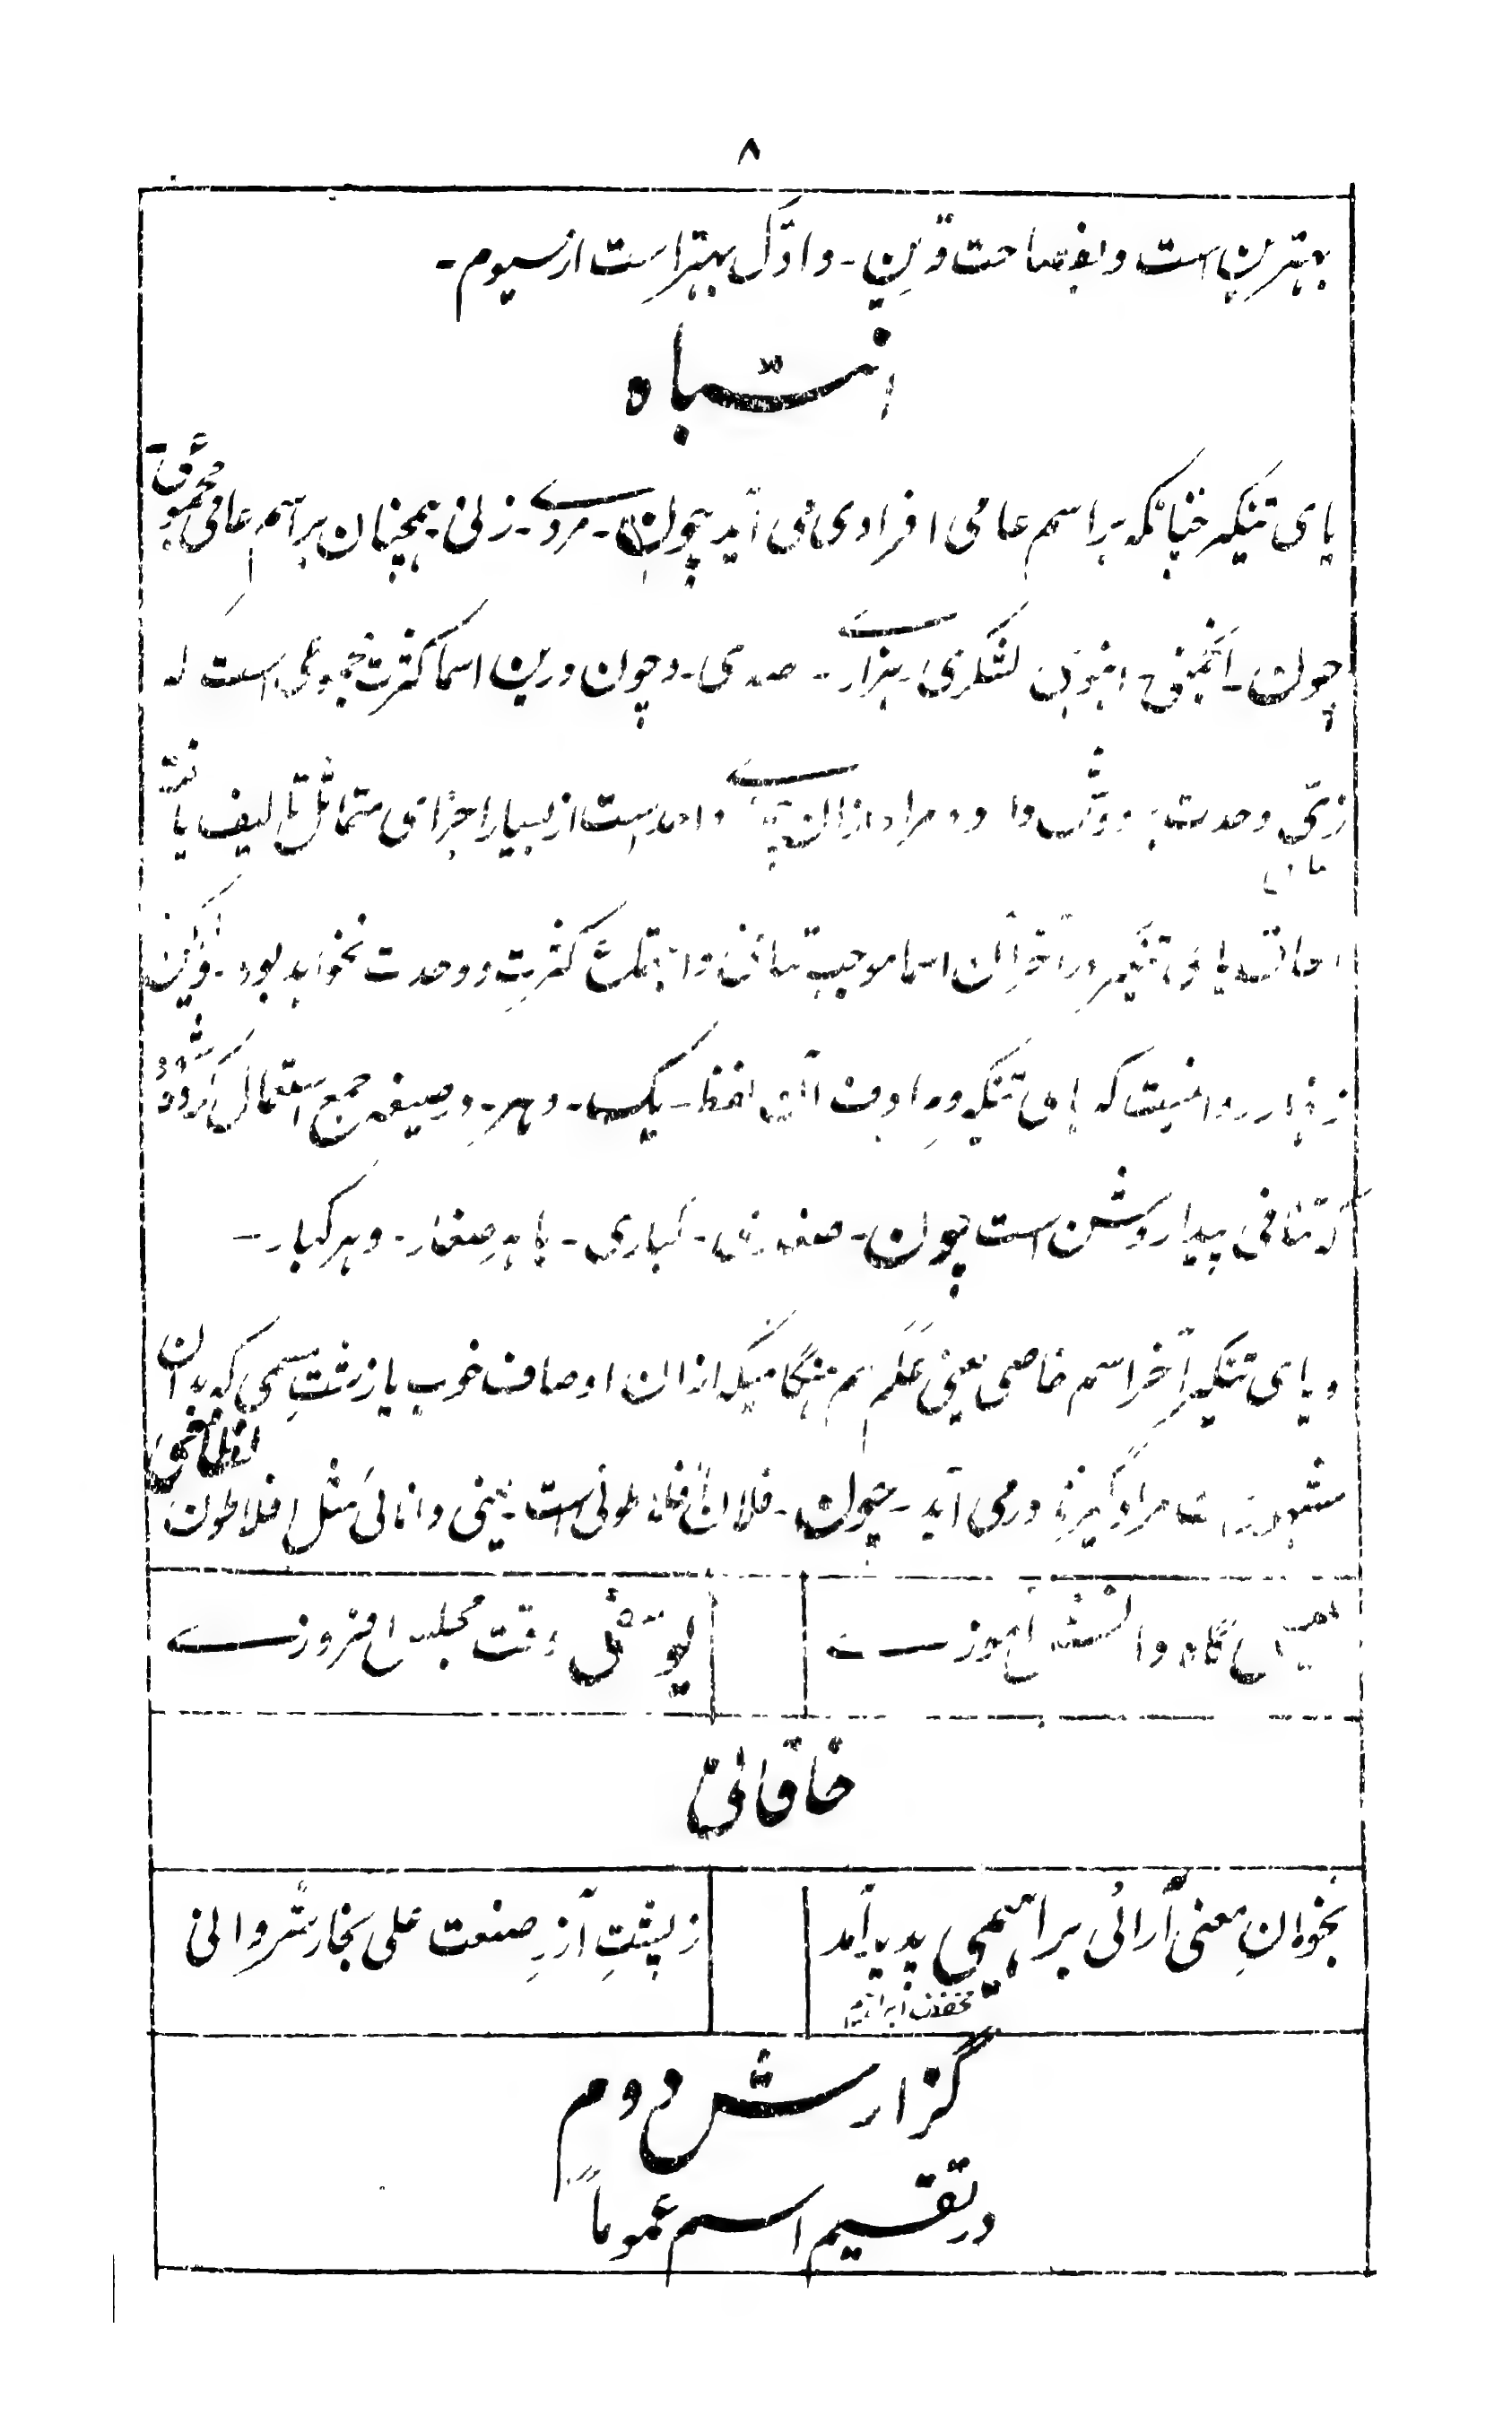 ۸
بهترین است و بفصاحت قرین - و اوّل بهتر است از سیوم -
انتباه
یای تنکیر چنانکه بر اسم عامی افرادی می آید چون - مردے - زنی - همچنان بر اسم عامی مجموعی
چون - انجمنی - انبوهی لشکری - هزارے - صدی - و چون درین اسما کثرت مجموعی است
زیّ وحدت بر دوش و مراد ازان واحدیست از بسیار اجزای متماثل تالیف یافته
الحاق یای تنکیر در آخر این اسما موجب تنافی و اجتماع کثرت و وحدت نخواهد بود - ولکن
زینهار روا نیست که یای تنکیر و مرادف آن لفظ - یک - و هر - در صیغه جمع استعمال کرده شود
که تنافی پیدا روشن است چون - صغاری - کباری - یا هر صغار - و هر کبار -
و یای تنکیر آخر اسم خاصی یعنی عَلَم هم هنگامیکه ازان اوصاف خوب یا زشتِ مسمی که بدان
مشهور است مراد گیرند در می آید - چون - فلان افلاطونی است - یعنی دانائی مثل افلاطون نظامی
گاه دانش آموزے
یوسفی وقت مجلس افروزے
خاقانی
بخوان معنی آرائی براهیمی پدید آمد
مخفف ابراهیم
ز پشتِ آزرِ صنعت علی نجار شروانی
گزارش دوم
در تقسیم اسم عموماً